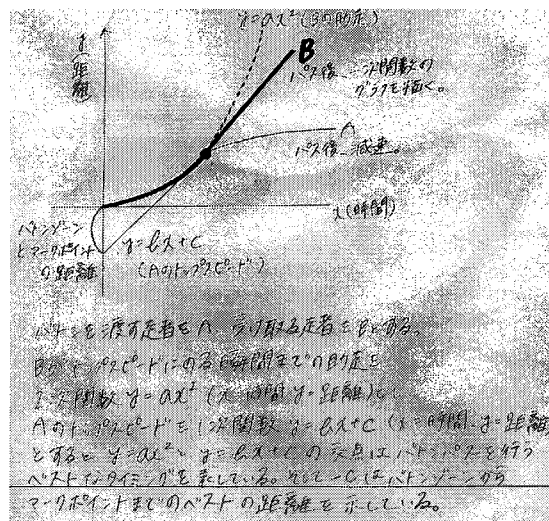 y=ax²(Bの助走)
B
y
(距離)
パス後 一次関数の
グラフを描く。
A
パス後 減速。
x(時間)
バトンゾーン
とマークポイント
の距離
y=bx+c
(Aのトップスピード)
バトンを渡す走者をA 受け取る走者をBとする。
Bがトップスピードになる瞬間までの助走を
2次関数 y=ax² (x=時間 y=距離)と
Aのトップスピードを1次関数 y=bx+c (x=時間 y=距離
とすると y=ax²と y=bx+c の交点はバトンパスを行う
ベストなタイミングを示している。そして-cはバトンゾーンから
マークポイントまでのベストの距離を示している。